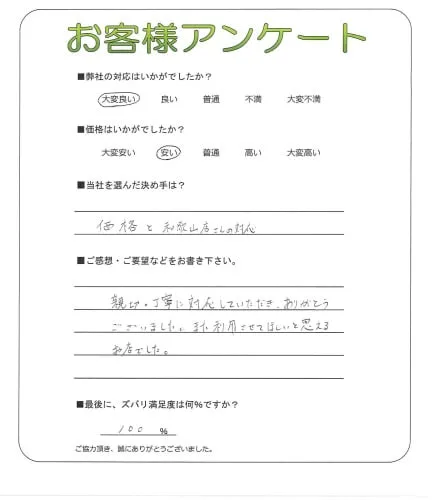 お客様アンケート
■弊社の対応はいかがでしたか？
大変良い 良い 普通 不満 大変不満
■価格はいかがでしたか？
大変安い 安い 普通 高い 大変高い
■当社を選んだ決め手は？
価格と和歌山店さんの対応
■ご感想・ご要望などをお書き下さい。
親切・丁寧に対応していただき、ありがとう
ございました。また利用させてほしいと思える
お店でした。
■最後に、ズバリ満足度は何％ですか？
100 ％
ご協力頂き、誠にありがとうございました。